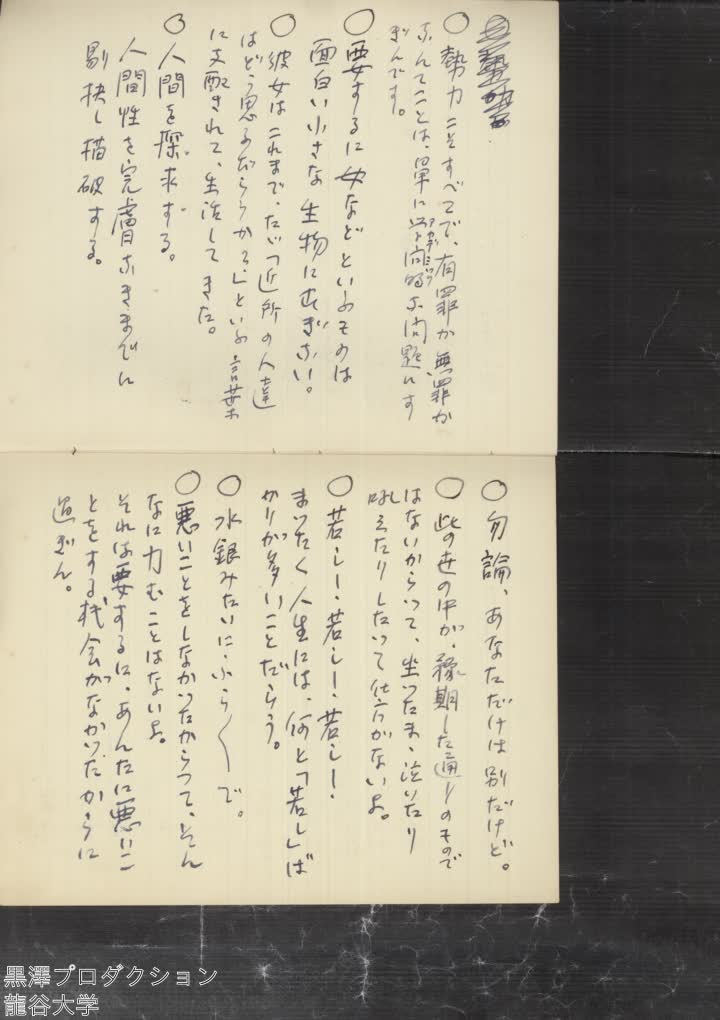 ○ 勢力こそすべてで、有罪か無罪か
なんてことは、単に学問的な問題にす
アカデミック
ぎんです。
○ 要するに女などといふものは
面白い小さな生物にすぎない。
○ 彼女はこれまで、たゞ「近所の人達
はどう思ふだらうかる」といふ言葉
に支配されて、生活してきた。
○ 人間を探求する。
人間性を完膚なきまでに
剔抉し描破する。
○ 勿論、あなただけは別だけど。
○ 此の世の中が、豫期した通りのもので
はないからつて、坐つたまゝ泣いたり
吼えたりしたつて仕方がないよ。
○ 若し・若し・若し・
まつたく人生には、何と「若し」ば
かりが多いことだらう。
○ 水銀みたいに・ふら〱で。
○ 悪いことをしなかつたからつて、そん
なに力むことはないよ。
それは要するに、あんたに悪いこ
とをする機会がなかつたからに
過ぎん。
黒澤プロダクション
龍谷大学